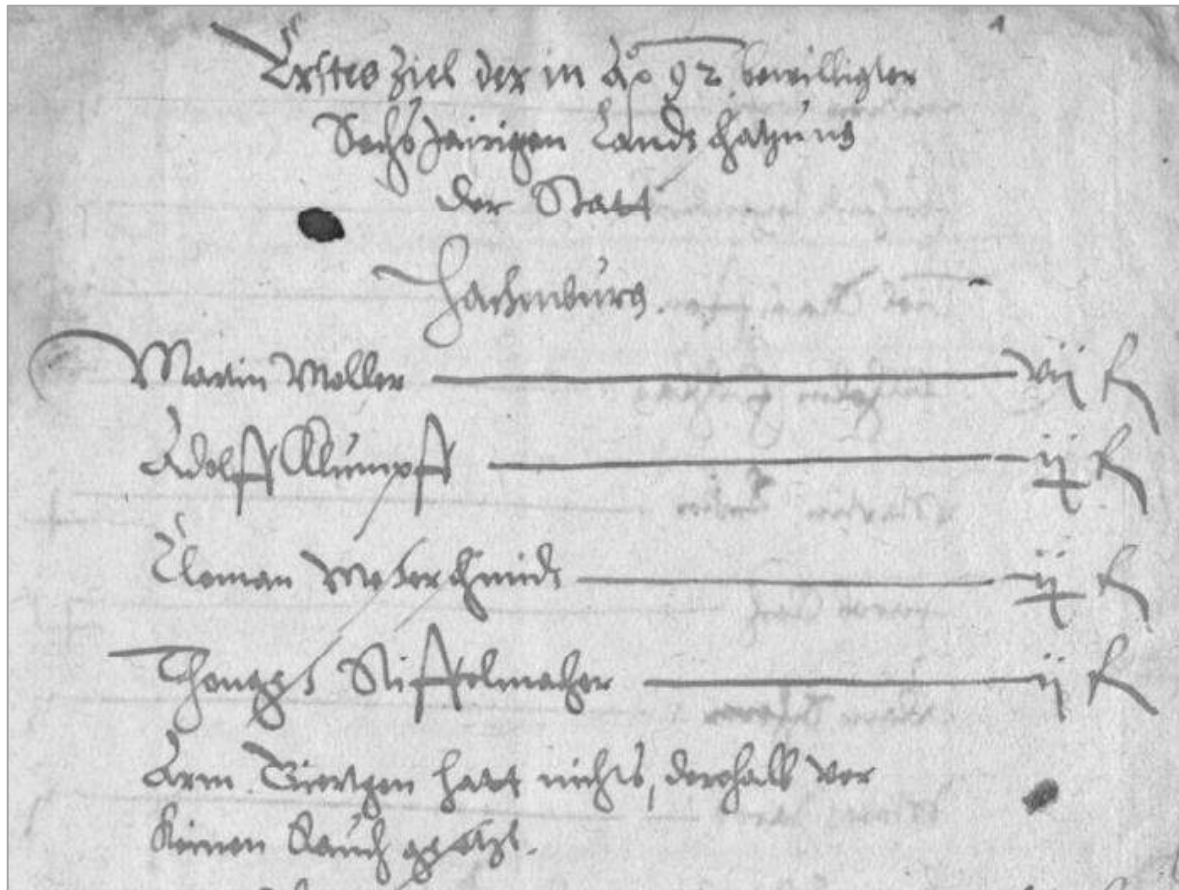 1
Erstes Ziel der in Ao 92 bewilligter
Sechs Jairigen Landtschatzung
der Statt
Hachenburg.
Mariin Moller vij fl
Adolff Klumpff ij fl
Tleman Meserschmidt ij fl
Thonges Stiffelmacher ij fl
Arm hatt nichts, derhalb vor
Keinen Rauch gesetzt.